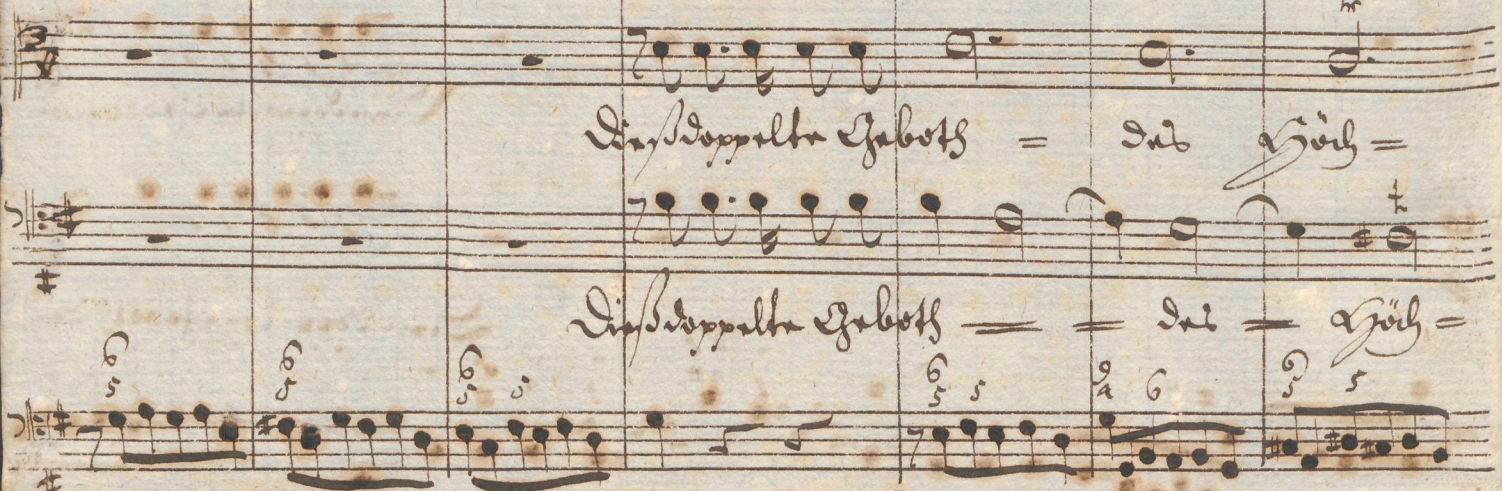 Dieß doppelte Geboth = des Höch =
Dieß doppelte Geboth = = des = Höch =
6 6 6 6 9 6
5 5 5 5 5 5 4 6 5 5